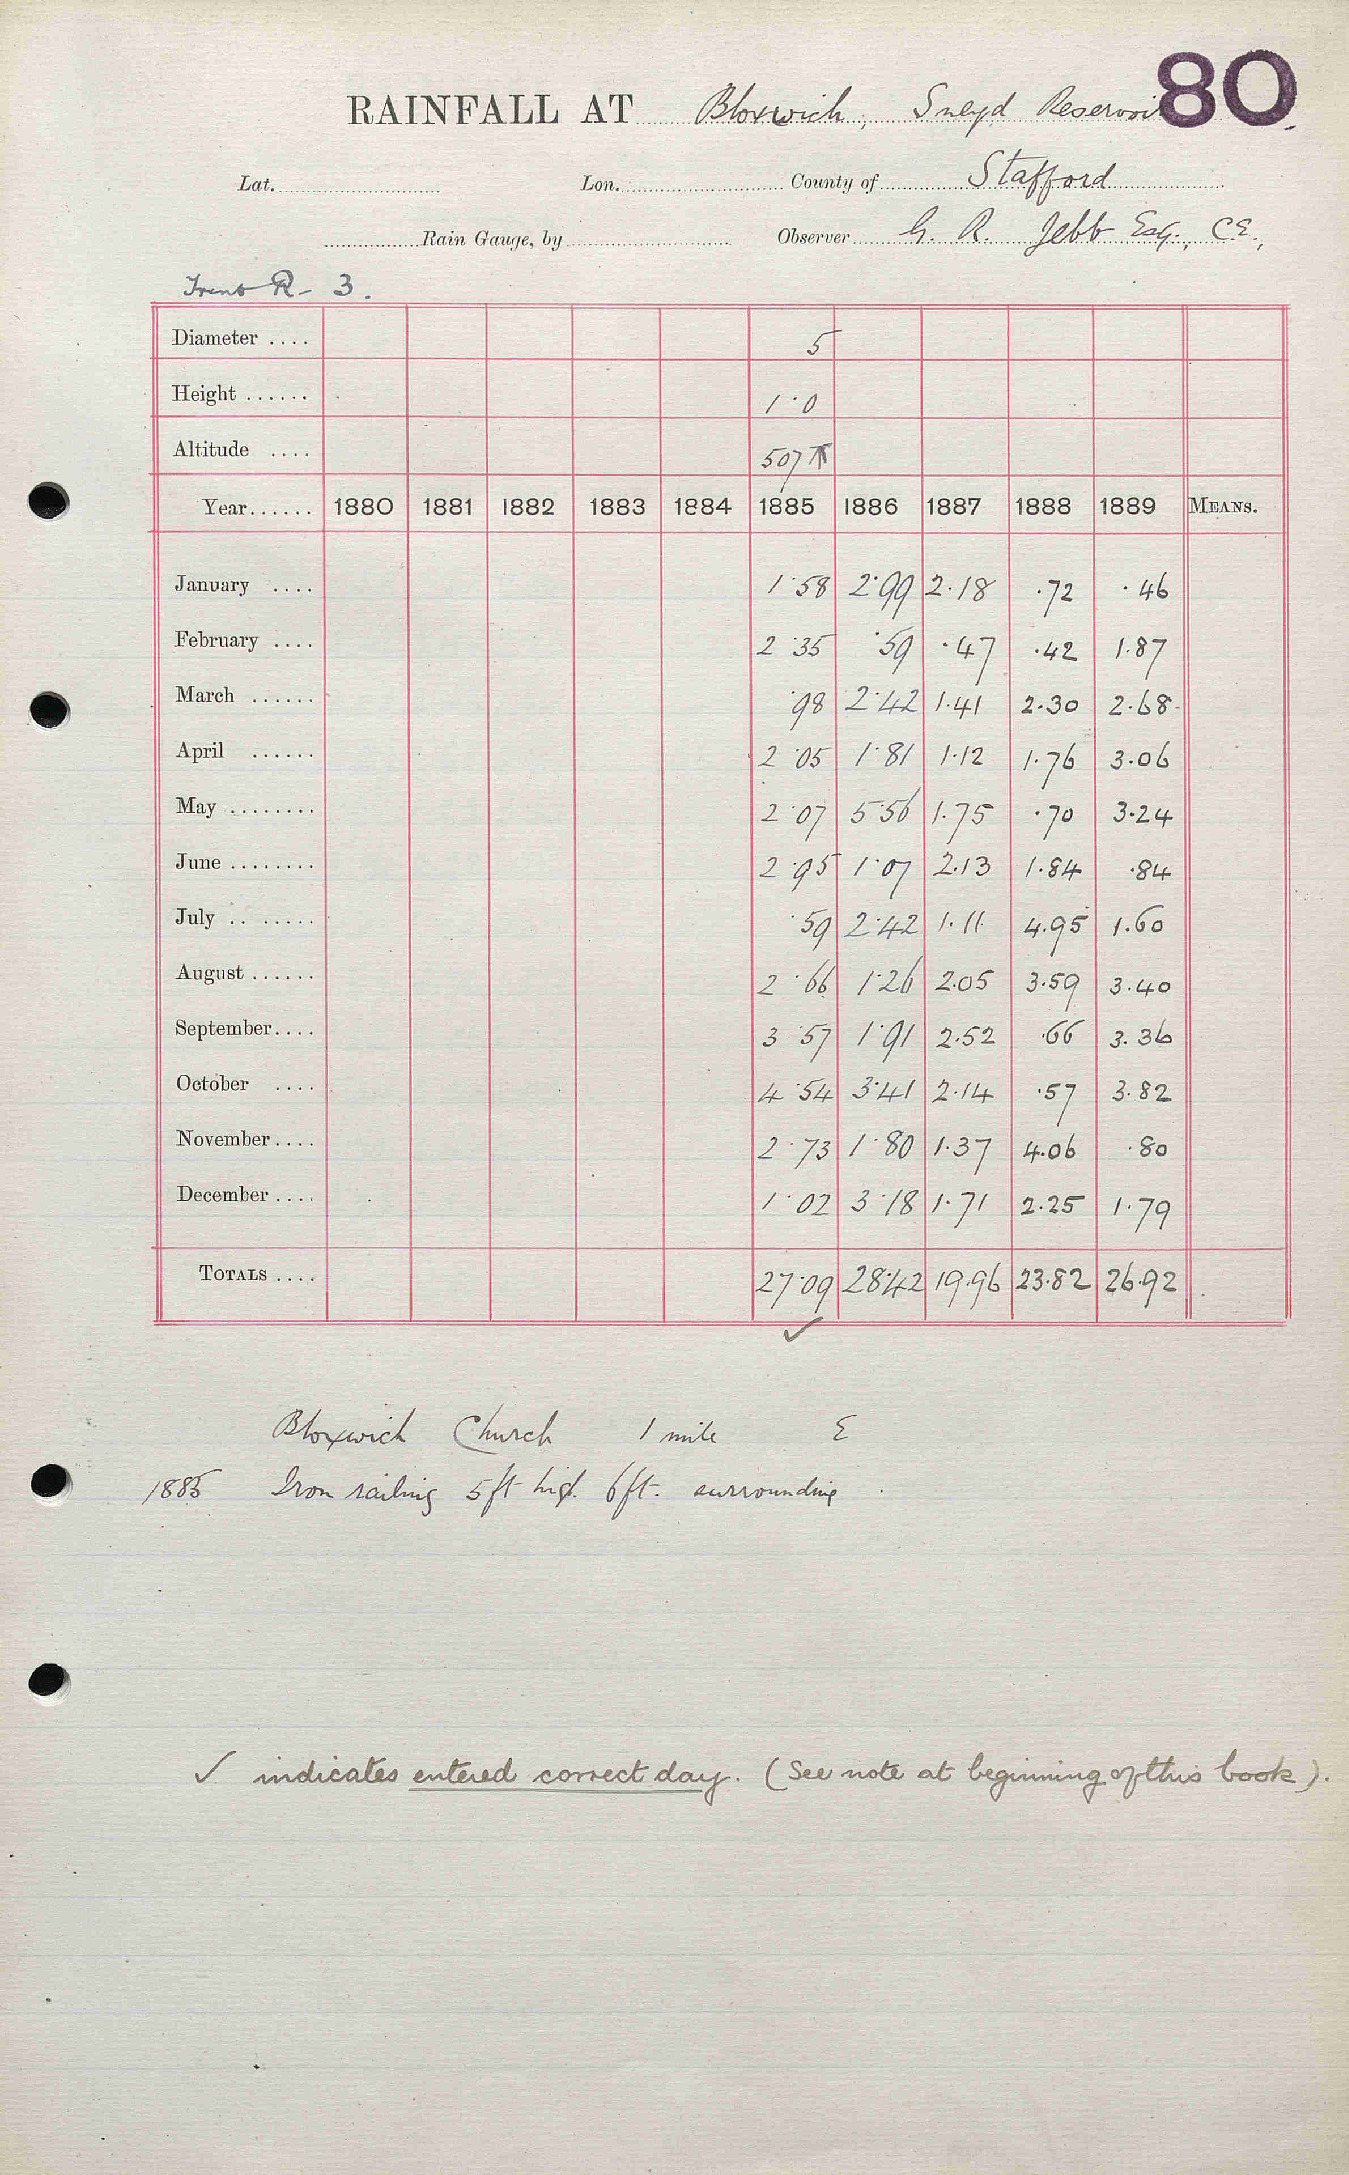 80
RAINFALL AT Bloxwich, Sneyd Reservoir
Lat. Lon. County of Stafford
Rain Gauge, by Observer G. R. Jebb Esq., CE.,
Trent R- 3.
Diameter .... 5
Height ...... 1·0
Altitude .... 507
Year...... 1880 1881 1882 1883 1884 1885 1886 1887 1888 1889 MEANS.
January .... 1·58 2·99 2·18 ·72 ·46
February .... 2·35 ·59 ·47 ·42 1·87
March ...... ·98 2·42 1·41 2·30 2·68
April ...... 2·05 1·81 1·12 1·76 3·06
May ........ 2·07 5·56 1·75 ·70 3·24
June ........ 2·95 1·07 2·13 1·84 ·84
July .. ...... ·59 2·42 1·11 4·95 1·60
August ...... 2·66 1·26 2·05 3·59 3·40
September.... 3·57 1·91 2·52 ·66 3·36
October .... 4·54 3·41 2·14 ·57 3·82
November.... 2·73 1·80 1·37 4·06 ·80
December .... 1·02 3·18 1·71 2·25 1·79
TOTALS .... 27·09 28·42 19·96 23·82 26·92
✓
Bloxwich Church 1 mile E
1885 Iron railing 5ft high 6ft. surrounding
✓ indicates entered correct day. (See note at beginning of this book).